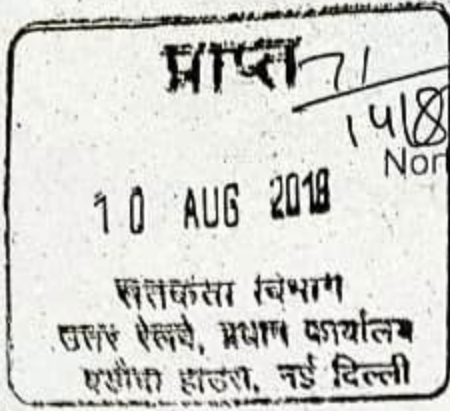 प्राप्त 71
1418
Nor
10 AUG 2018
सतर्कता विभाग
उत्तर रेलवे, प्रधान कार्यालय
नई दिल्ली